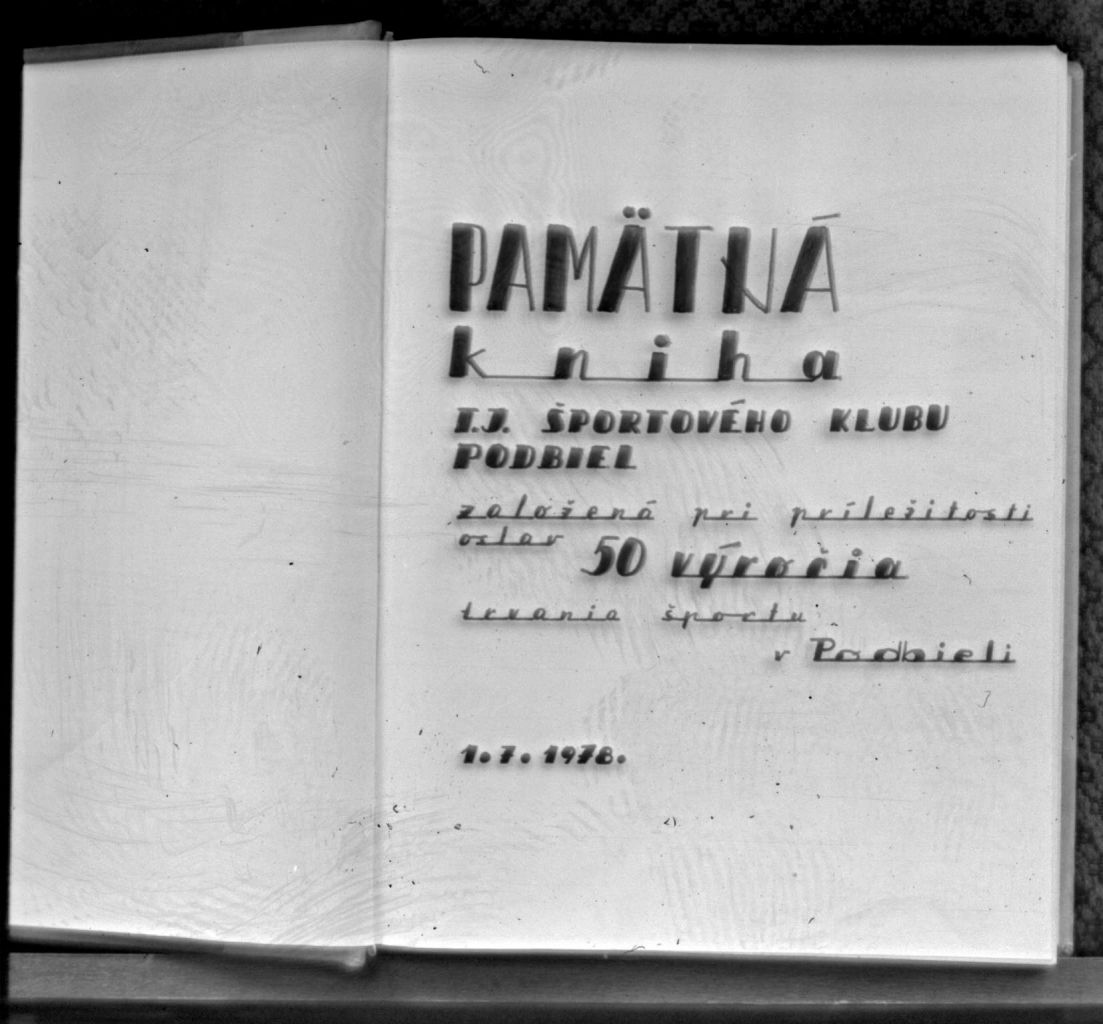 PAMÄTNÁ
kniha
T.J. ŠPORTOVÉHO KLUBU
PODBIEL
založená pri príležitosti
osláv 50 výročia
trvania športu
v Podbieli
1.7.1978.